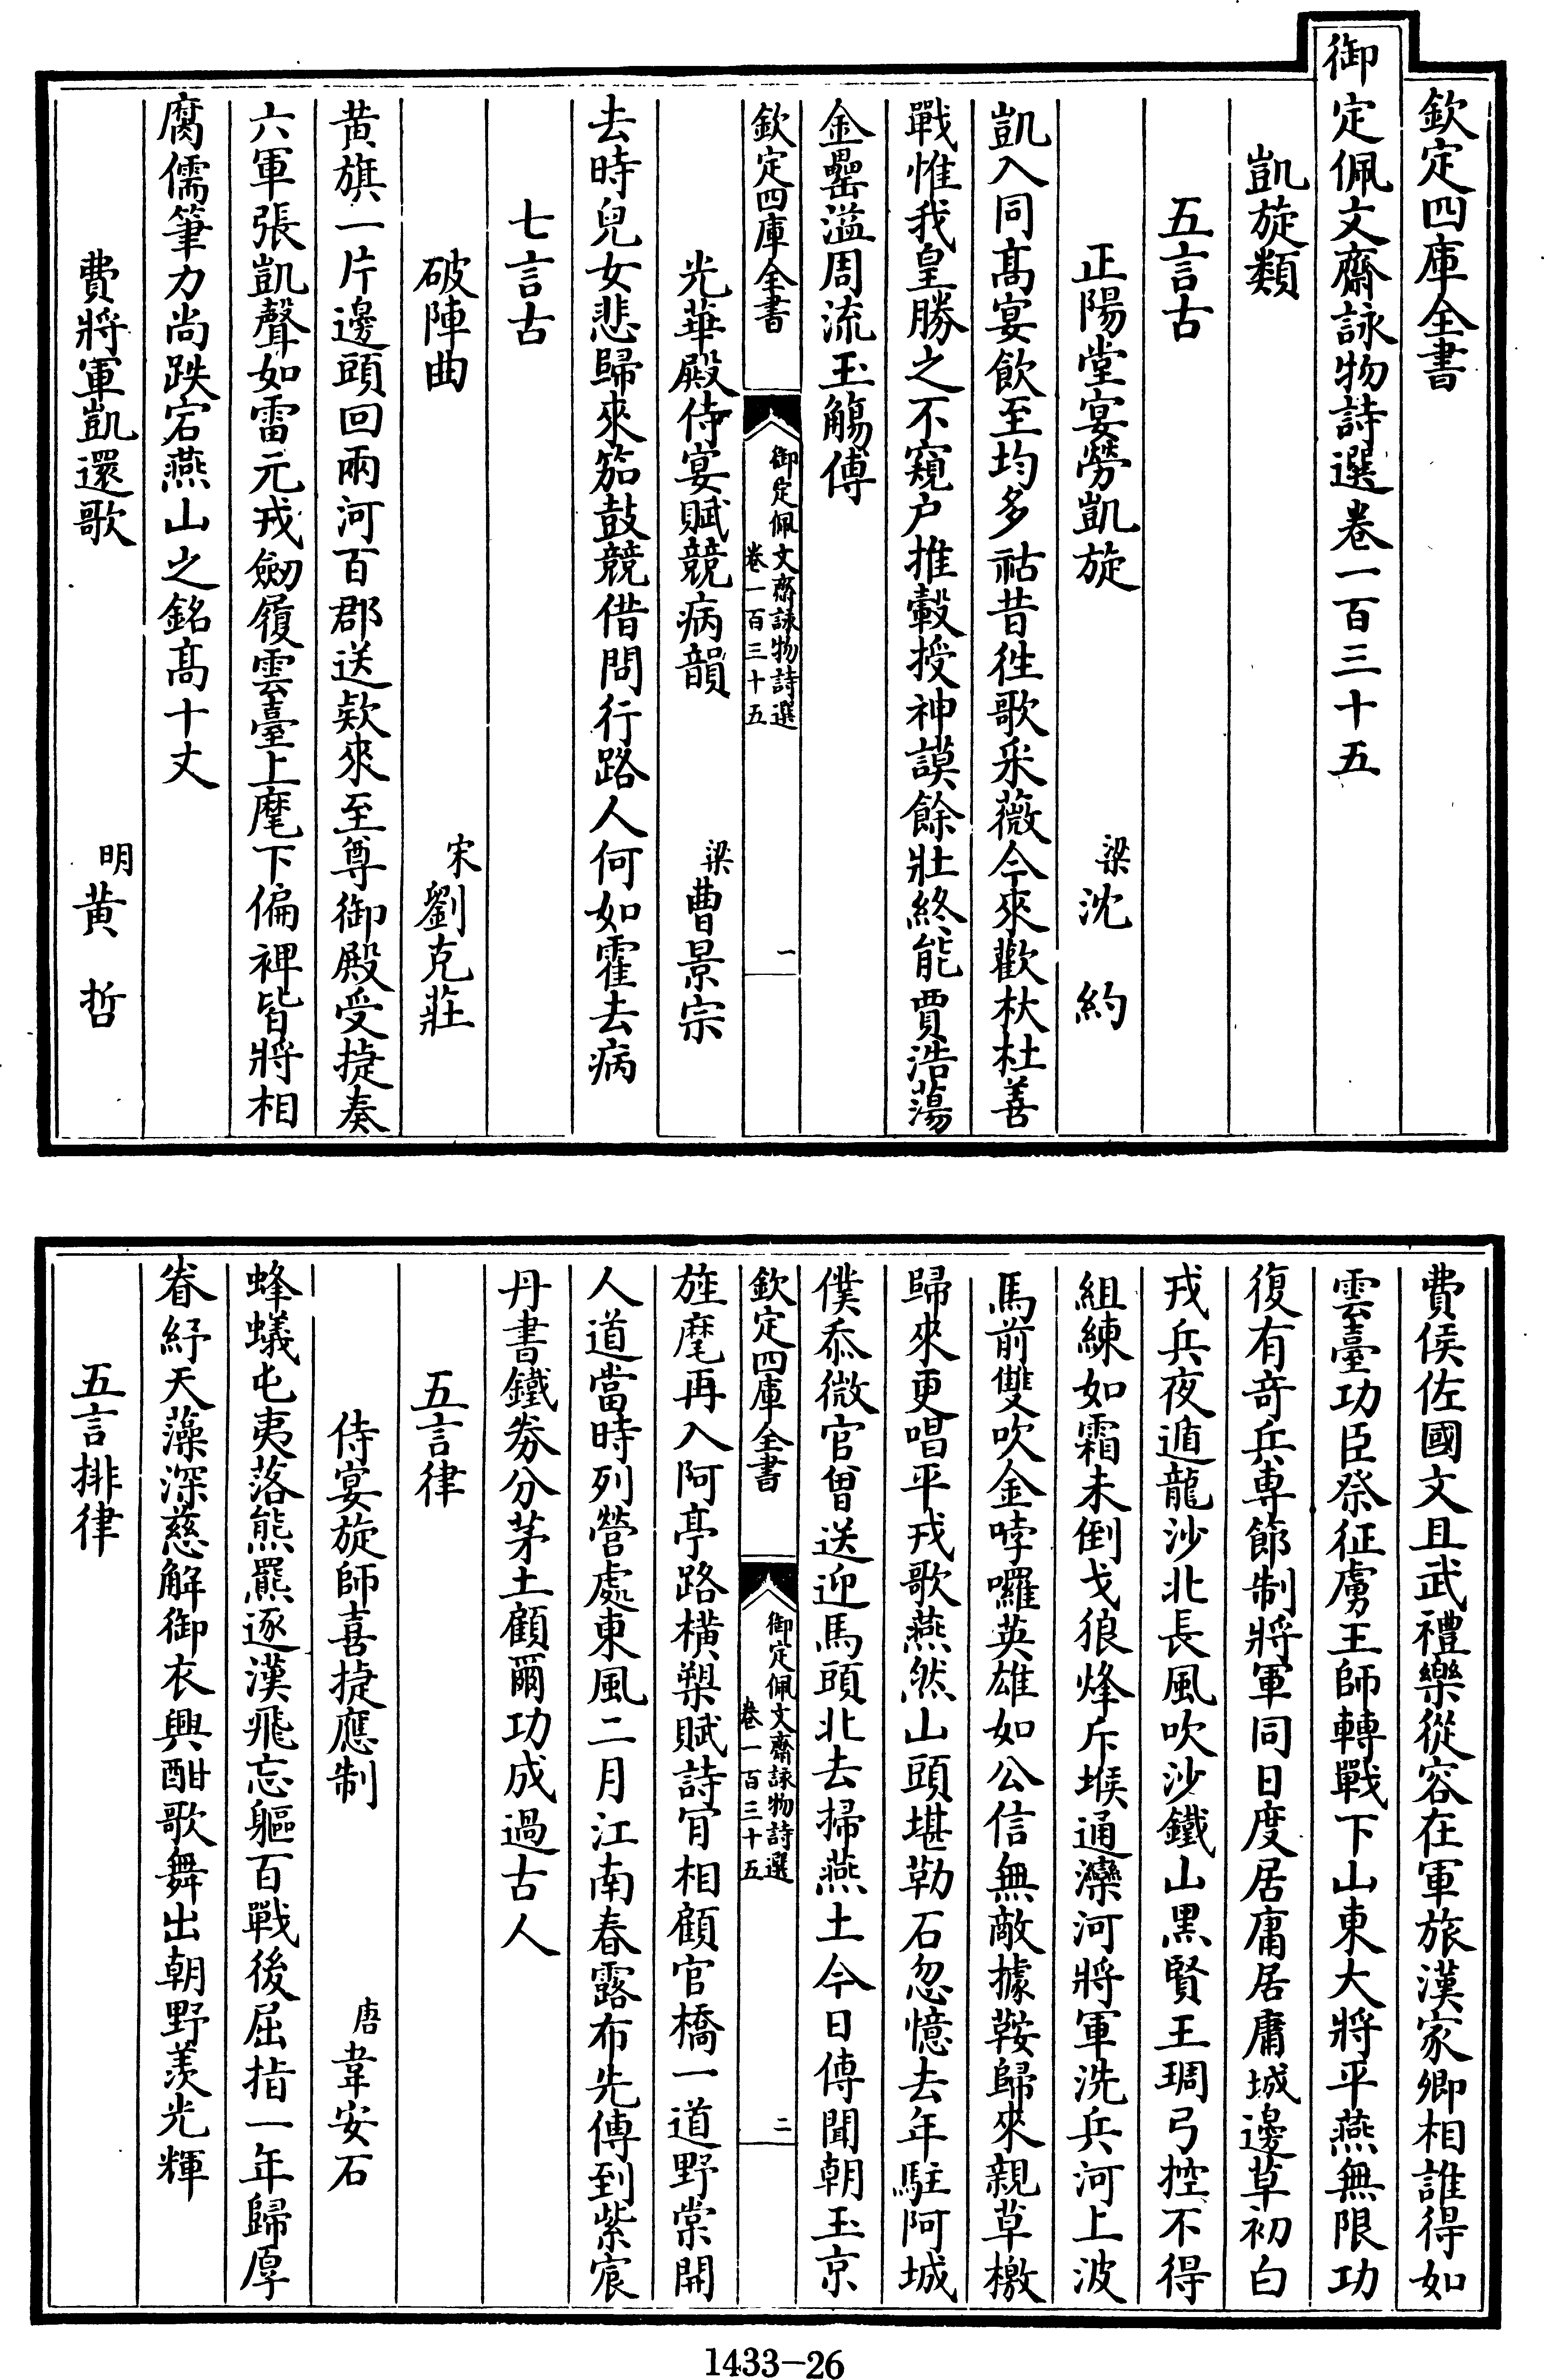 欽定四庫全書
御定佩文齋詠物詩選卷一百三十五
凱旋類
五言古
正陽堂宴勞凱旋 梁沈約
凱入同髙宴飲至均多祜昔徃歌采薇今來歡杕杜善
戰惟我皇勝之不窺户推轂授神謨餘壯終能賈浩蕩
金罍溢周流玉觴傅
欽定四庫全書 御定佩文齋詠物詩選 卷一百三十五 一
光華殿侍宴賦競病韻 梁曹景宗
去時兒女悲歸來笳鼓競借問行路人何如霍去病
七言古
破陣曲 宋劉克莊
黄旗一片邊頭回兩河百郡送欵來至尊御殿受捷奏
六軍張凱聲如雷元戎劒履雲臺上麾下偏裨皆將相
腐儒筆力尚跌宕燕山之銘髙十丈
費將軍凱還歌 明黄哲
費侯佐國文且武禮樂從容在軍旅漢家卿相誰得如
雲臺功臣祭征虜王師轉戰下山東大將平燕無限功
復有奇兵専節制將軍同日度居庸居庸城邊草初白
戎兵夜遁龍沙北長風吹沙鐵山黒賢王琱弓控不得
組練如霜未倒戈狼烽斥堠通灤河將軍洗兵河上波
馬前雙吹金哱囉英雄如公信無敵據鞍歸來親草檄
歸來更唱平戎歌燕然山頭堪勒石忽憶去年駐阿城
僕忝微官曽送迎馬頭北去掃燕土今日傳聞朝玉京
欽定四庫全書 御定佩文齋詠物詩選 卷一百三十五 二
旌麾再入阿亭路横槊賦詩肎相顧官橋一道野棠開
人道當時列營處東風二月江南春露布先傳到紫宸
丹書鐵劵分茅土顧爾功成過古人
五言律
侍宴旋師喜捷應制 唐韋安石
蜂蟻屯夷落熊羆逐漢飛忘軀百戰後屈指一年歸厚
眷紓天藻深慈解御衣興酣歌舞出朝野羨光輝
五言排律
1433-26